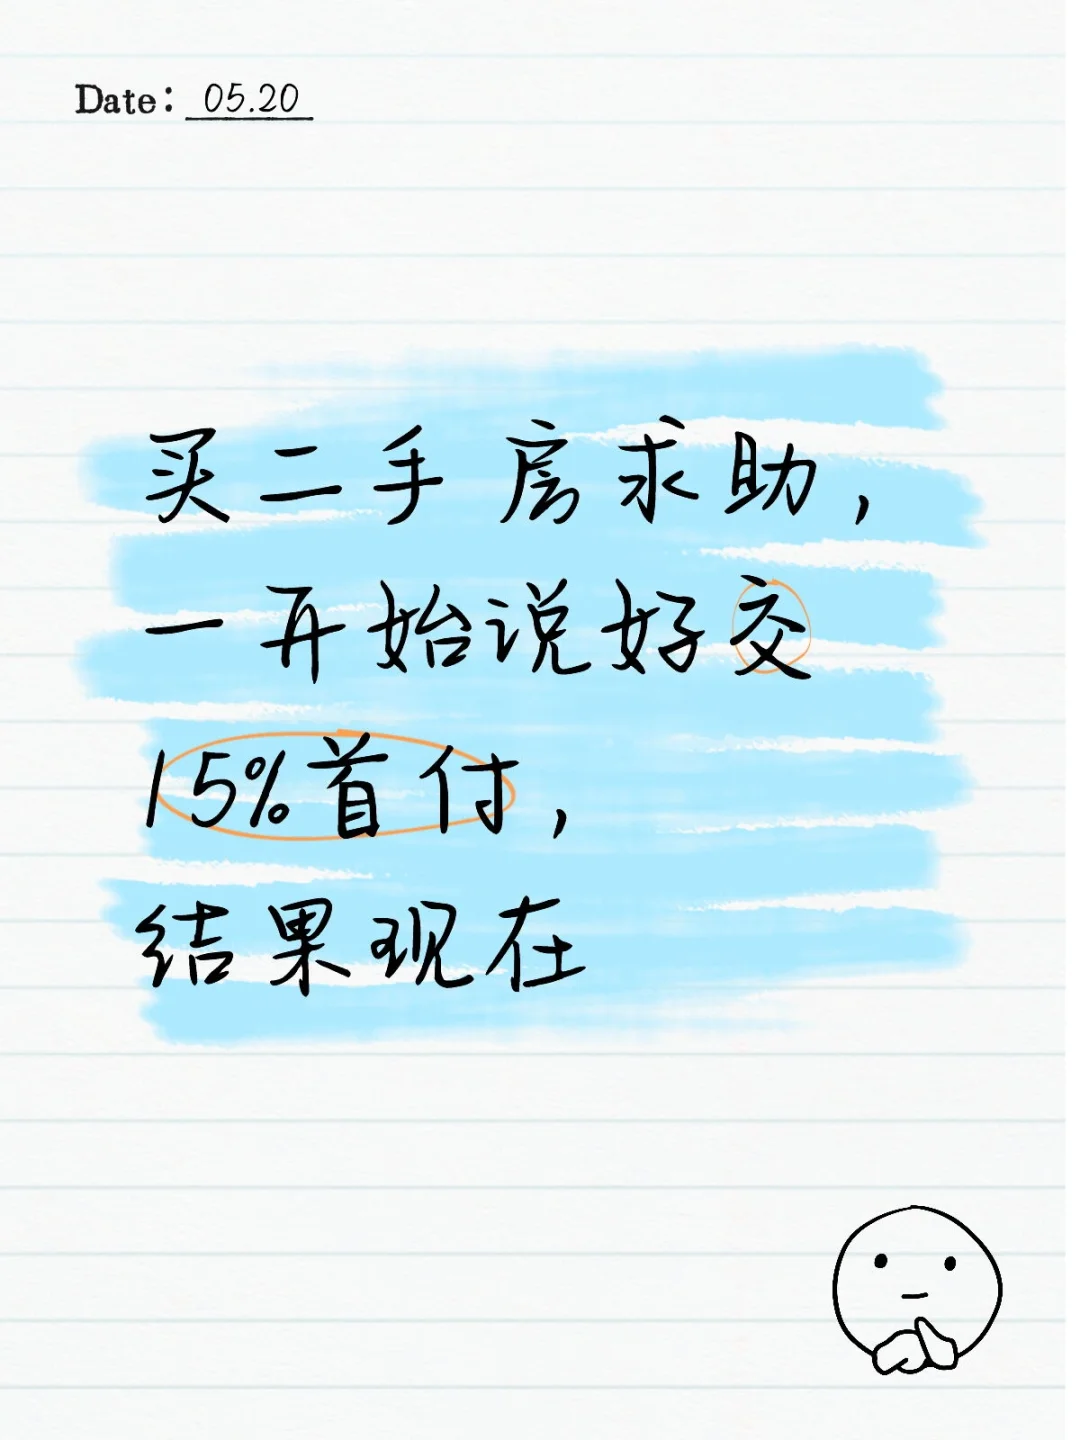 Date: 05.20
买二手房求助，
一开始说好交
15%首付，
结果现在